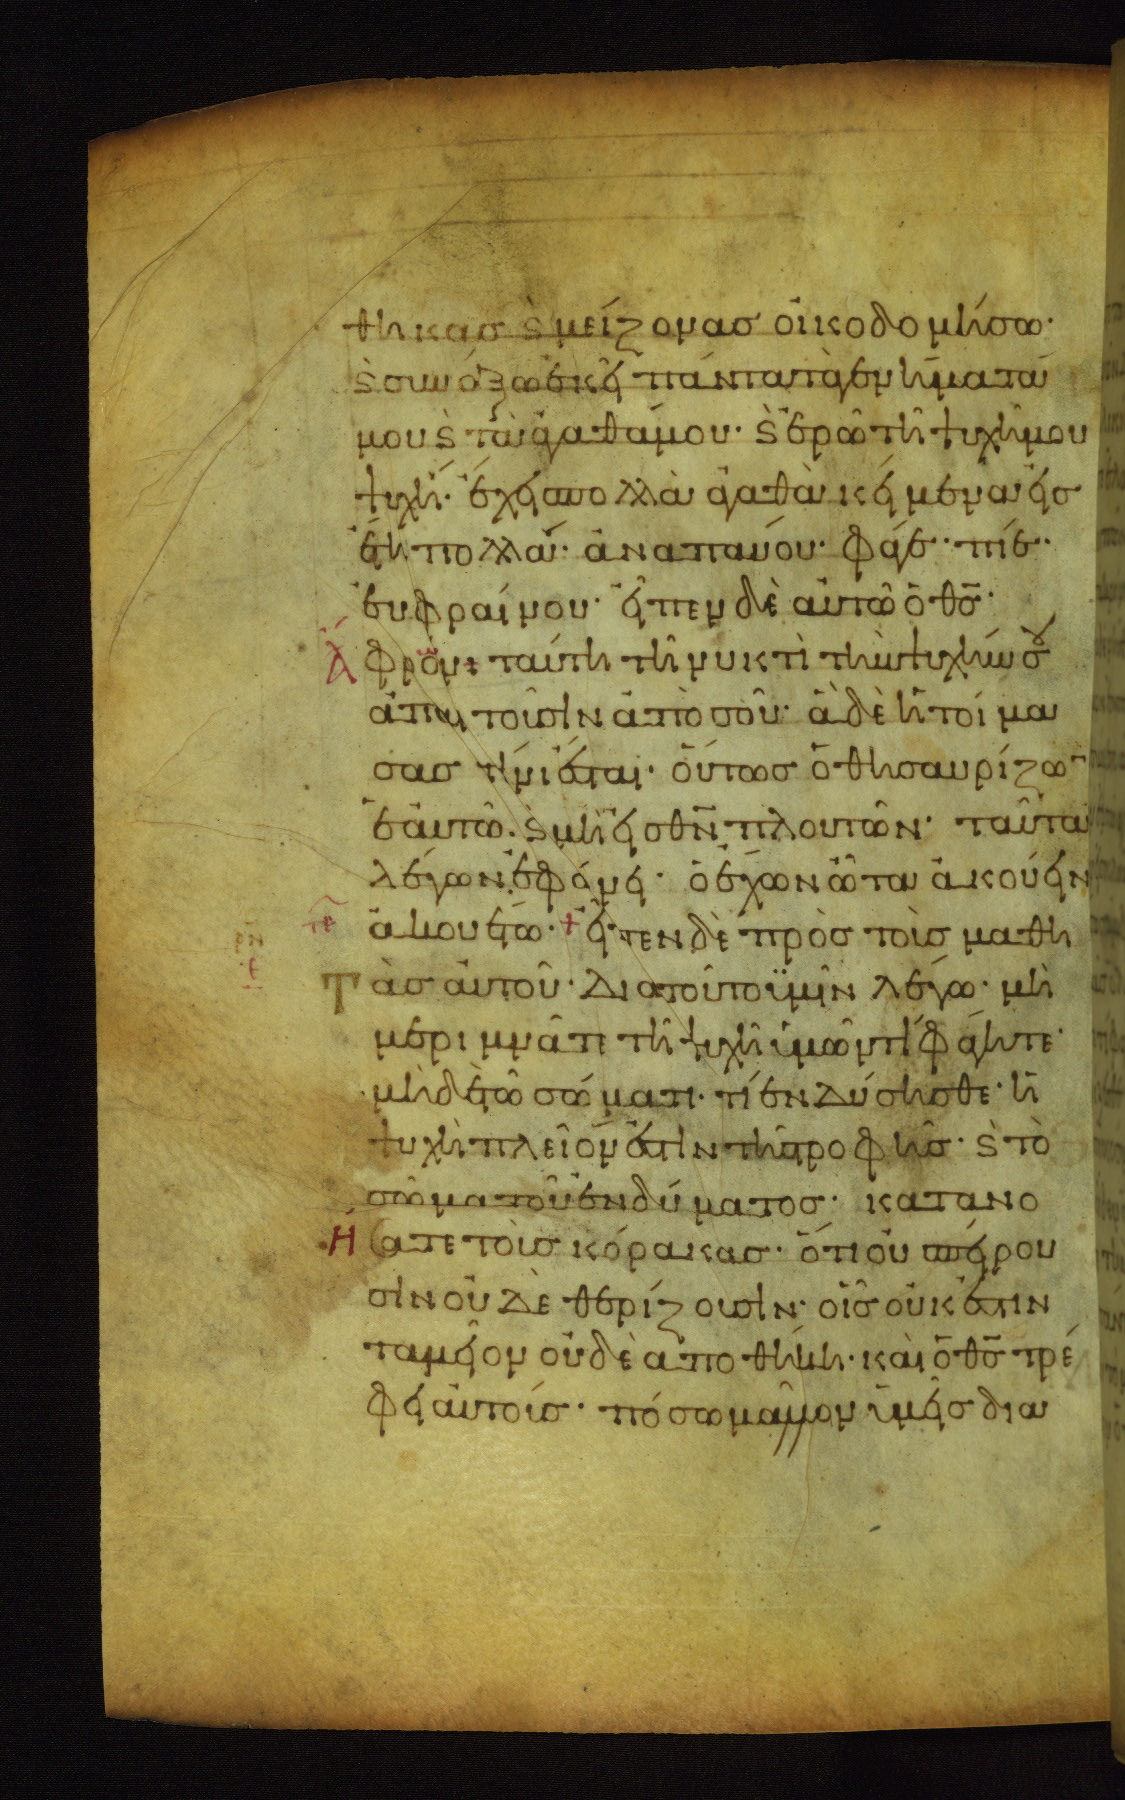 θήκας ϗ μείζονας οἰκοδομήσω·
ϗ συνάξω ἐκεῖ πάντα τὰ γενήματά
μου ϗ τὰ ἀγαθά μου· ϗ ἐρῶ τῆ ψυχῆ μου
ψυχή· ἔχεις πολλὰ ἀγαθὰ κείμενα εἰς
ἔτη πολλά· ἀναπαύου· φάγε· πίε·
εὐφραίνου· εἶπεν δὲ αὐτῶ ὁ θς·
Ἄφρον· ταύτη τῆ νυκτὶ τὴν ψυχήν σου
ἀπαιτοῦσιν ἀπὸ σοῦ· ἃ δὲ ἡτοίμα
σας τίνι ἔσται· οὕτως ὁ θησαυρίζων
ἑαυτῶ· ϗ μὴ εἰς θν πλουτῶν· ταῦτα
λέγων ἐφώνει· ὁ ἔχων ὦτα ἀκούειν
ἀκουέτω· + εἶπεν δὲ πρὸς τοὺς μαθη
τὰς αὐτοῦ· Διατοῦτο ϋμῖν λέγω· μὴ
μεριμνᾶτε τῆ ψυχῆ ὑμῶν τί φάγητε·
μὴ δὲ τῶ σώματι· τί ἐνδύσησθε· ἡ
ψυχὴ πλεῖόν ἐστιν τῆς τροφῆς· ϗ τὸ
σῶμα τοῦ ἐνδύματος· κατανο
ήσατε τοὺς κόρακας· ὅτι οὐ σπείρου
σιν οὐδὲ θερίζουσιν· οἷς οὐκ ἔστιν
ταμεῖον οὐδὲ ἀποθήκη· καὶ ὁ θς τρέ
φει αὐτούς· πόσω μᾶλλον ὑμεῖς δια